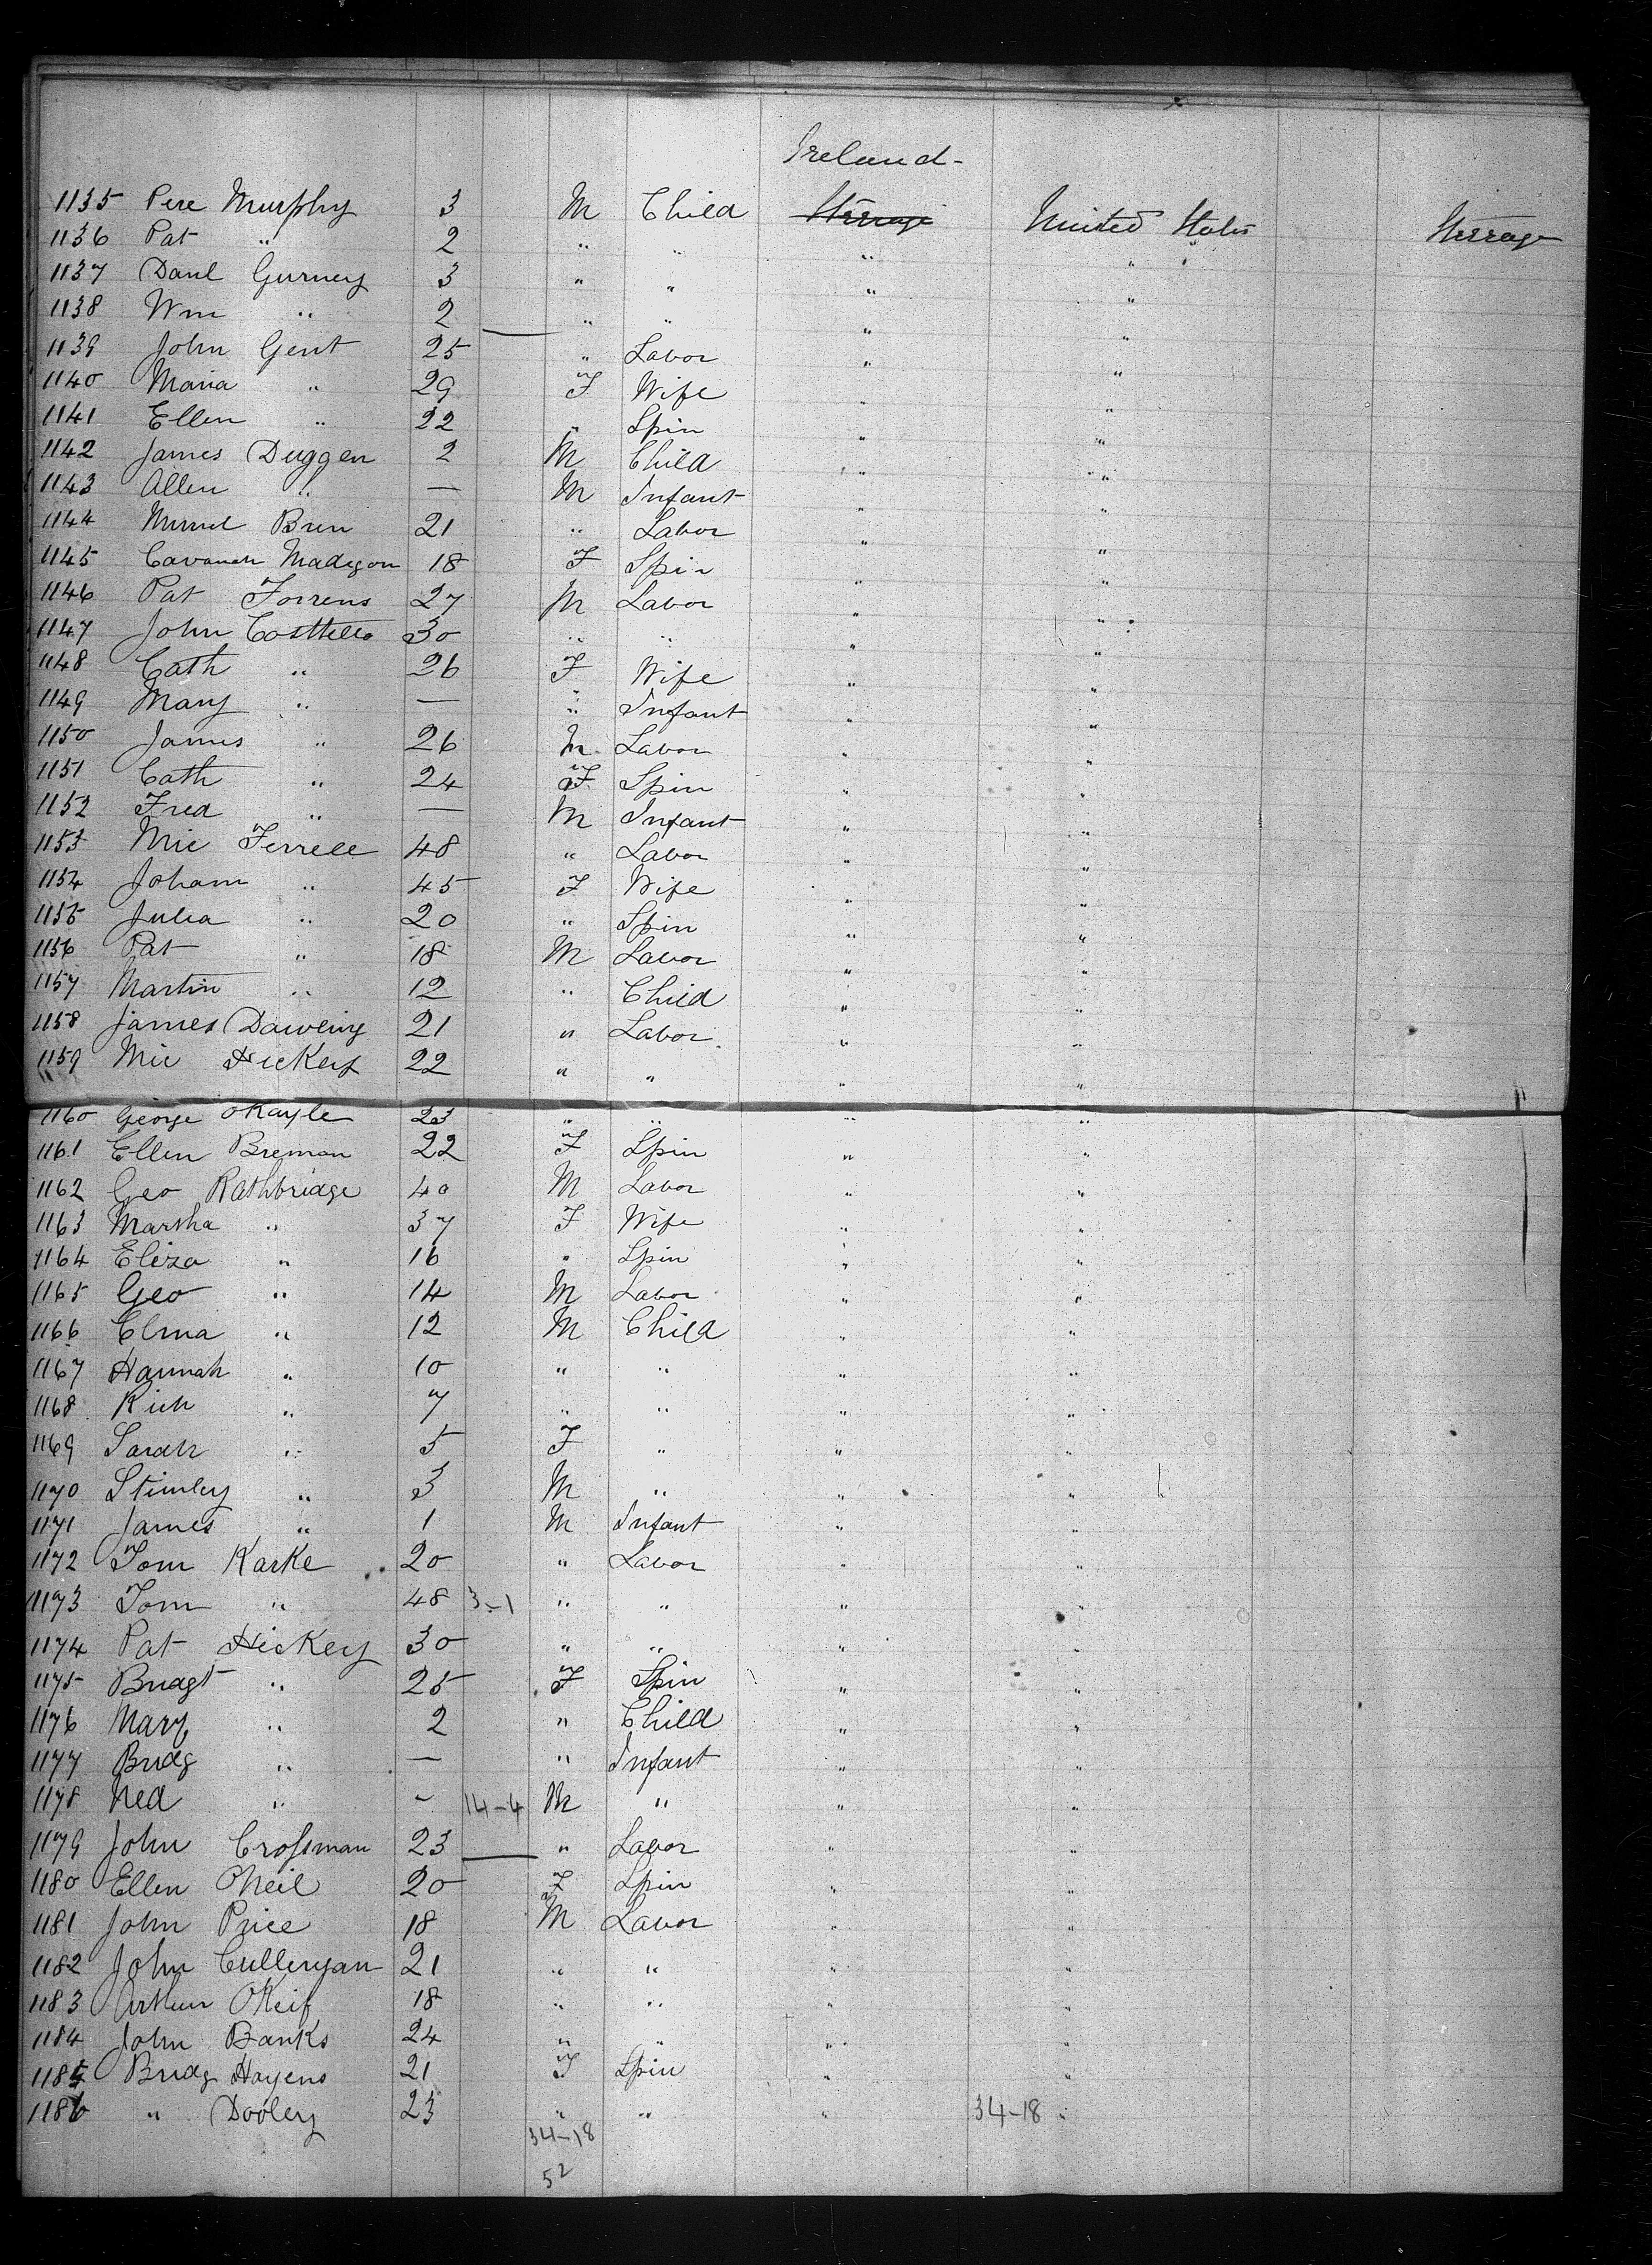 Ireland-
1135 Pere Murphy 3 M Child Sterrage United States Sterrage
1136 Pat " 2 " " " "
1137 Danl Gurney 3 " " " "
1138 Wm " 2 " " " "
1139 John Gent 25 " Labor " "
1140 Maria " 29 F Wife " "
1141 Ellen " 22 " Spin " "
1142 James Duggen 2 M Child " "
1143 Allen " — M Infant " "
1144 Bren 21 " Labor " "
1145 Cavanah Madigan 18 F Spin " "
1146 Pat Torrens 27 M Labor " "
1147 John Costtello 30 " " " "
1148 Cath " 26 F Wife " "
1149 Mary " — " Infant " "
1150 James " 26 M Labor " "
1151 Cath " 24 F Spin " "
1152 Fred " — M Infant " "
1153 Mic Ferrell 48 " Labor " "
1154 Johann " 45 F Wife " "
1155 Julia " 20 " Spin " "
1156 Pat " 18 M Labor " "
1157 Martin " 12 " Child " "
1158 James Daweing 21 " Labor " "
1159 Mic Hickey 22 " " " "
1160 George OKayle 23 " " " "
1161 Ellen Brennan 22 F Spin " "
1162 Geo Rathbridge 40 M Labor " "
1163 Martha " 37 F Wife " "
1164 Eliza " 16 " Spin " "
1165 Geo " 14 M Labor " "
1166 Elma " 12 M Child " "
1167 Hannah " 10 " " " "
1168 Rich " 7 " " " "
1169 Sarah " 5 F " " "
1170 Stimley " 3 M " " "
1171 James " 1 M Infant " "
1172 Tom Karke 20 " Labor " "
1173 Tom " 48 3-1 " " " "
1174 Pat Hickey 30 " " " "
1175 Bridgt " 25 F Spin " "
1176 Mary " 2 " Child " "
1177 Bridg " — " Infant " "
1178 Ned " - 14-4 M " " "
1179 John Crossman 23 " Labor " "
1180 Ellen ONeil 20 F Spin " "
1181 John Price 18 M Labor " "
1182 John Cullenyan 21 " " " "
1183 Arthur OKeif 18 " " " "
1184 John Banks 24 " " " "
1185 Bridg Hayens 21 F Spin " "
1186 " Dooley 23 " " " 34-18 "
34-18
52